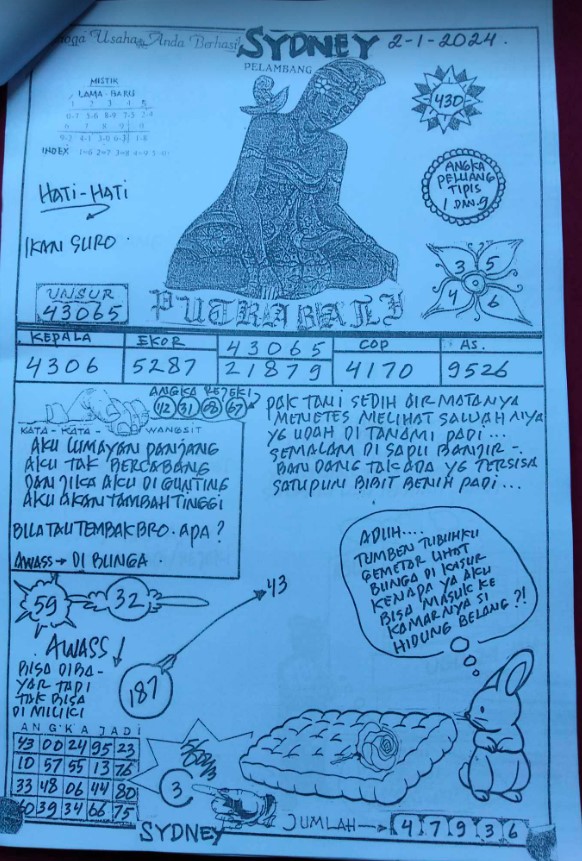 Usaha Anda Berhasil
SYDNEY 2-1-2024.
PELAMBANG
MISTIK
LAMA - BARU
1 2 3 4 5
6 7 8 9 0
INDEX 1=6 2=7 3=8 4=9 5=0
430
HATI-HATI
ANGKA
PELUANG
TIPIS
1 DAN 9
IKAN SURO
3 5
4 6
UNSUR
43065
PUTRA BALI
KEPALA EKOR 43065 COP AS.
4306 5287 21879 4170 9526
ANGKA REJEKI
12 31 68 67
KATA - KATA WANGSIT
AKU LUMAYAN PANJANG
AKU TAK BERCABANG
DAN JIKA AKU DI GUNTING
AKU AKAN TAMBAH TINGGI
BILA TAU TEMBAK BRO. APA?
AWASS → DI BUNGA
PAK TANI SEDIH AIR MATANYA
MENETES MELIHAT SAWAH NYA
YG UDAH DI TANAMI PADI...
SEMALAM DI SAPU BANJIR -.
BAN DANG TAK ADA YG TERSISA
SATUPUN BIBIT BENIH PADI...
ADUH....
TUMBEN TUBUHKU
GEMETAR LIHAT
BUNGA DI KASUR
KENAPA YA AKU
BISA MASUK KE
KAMARNYA SI
HIDUNG BELANG ?!
59 32
43
AWASS
BISA DIBA-
YAR TAPI
TAK BISA
DI MILIKI
187
ANGKA JADI
43 00 24 95 23
10 57 55 13 76
33 48 06 44 80
60 39 34 66 75
3
SYDNEY JUMLAH → 4 7 9 3 6